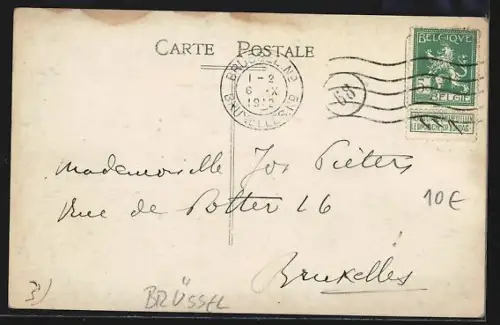 CARTE POSTALE
BRUXEL. No
1-2
6 IX
1912
BRUXELLES No
68
BELGIQUE
5
BELGIË
Mademoiselle Jos Pieters
Rue de Potter 26
10€
Bruxelles
3)
BRÜSSEL